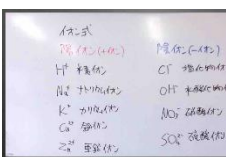 イオン式
陽イオン(+イオン)
H⁺ 水素イオン
Na⁺ ナトリウムイオン
K⁺ カリウムイオン
Ca²⁺ イオン
Zn²⁺ 亜鉛イオン
陰イオン(-イオン)
Cl⁻ 塩化物イオン
OH⁻ 水酸化物イオン
NO₃⁻ 硝酸イオン
SO₄²⁻ 硫酸イオン